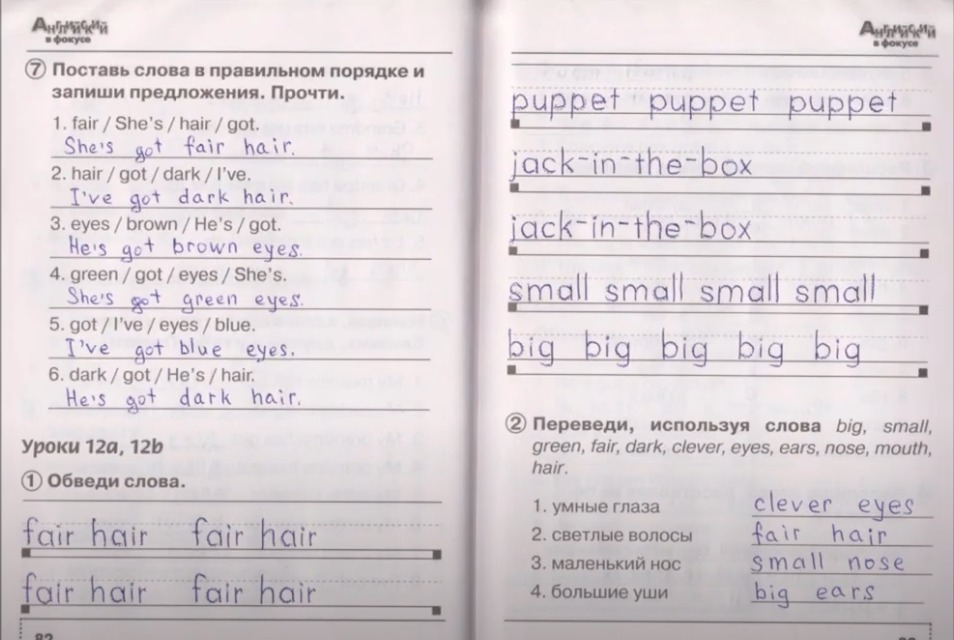 Английский
в фокусе
7 Поставь слова в правильном порядке и
запиши предложения. Прочти.
1. fair / She's / hair / got.
She's got fair hair.
2. hair / got / dark / I've.
I've got dark hair.
3. eyes / brown / He's / got.
He's got brown eyes.
4. green / got / eyes / She's.
She's got green eyes.
5. got / I've / eyes / blue.
I've got blue eyes.
6. dark / got / He's / hair.
He's got dark hair.
Уроки 12a, 12b
1 Обведи слова.
fair hair fair hair
fair hair fair hair
82
Английский
в фокусе
puppet puppet puppet
jack-in-the-box
jack-in-the-box
small small small small
big big big big big
2 Переведи, используя слова big, small,
green, fair, dark, clever, eyes, ears, nose, mouth,
hair.
1. умные глаза clever eyes
2. светлые волосы fair hair
3. маленький нос small nose
4. большие уши big ears